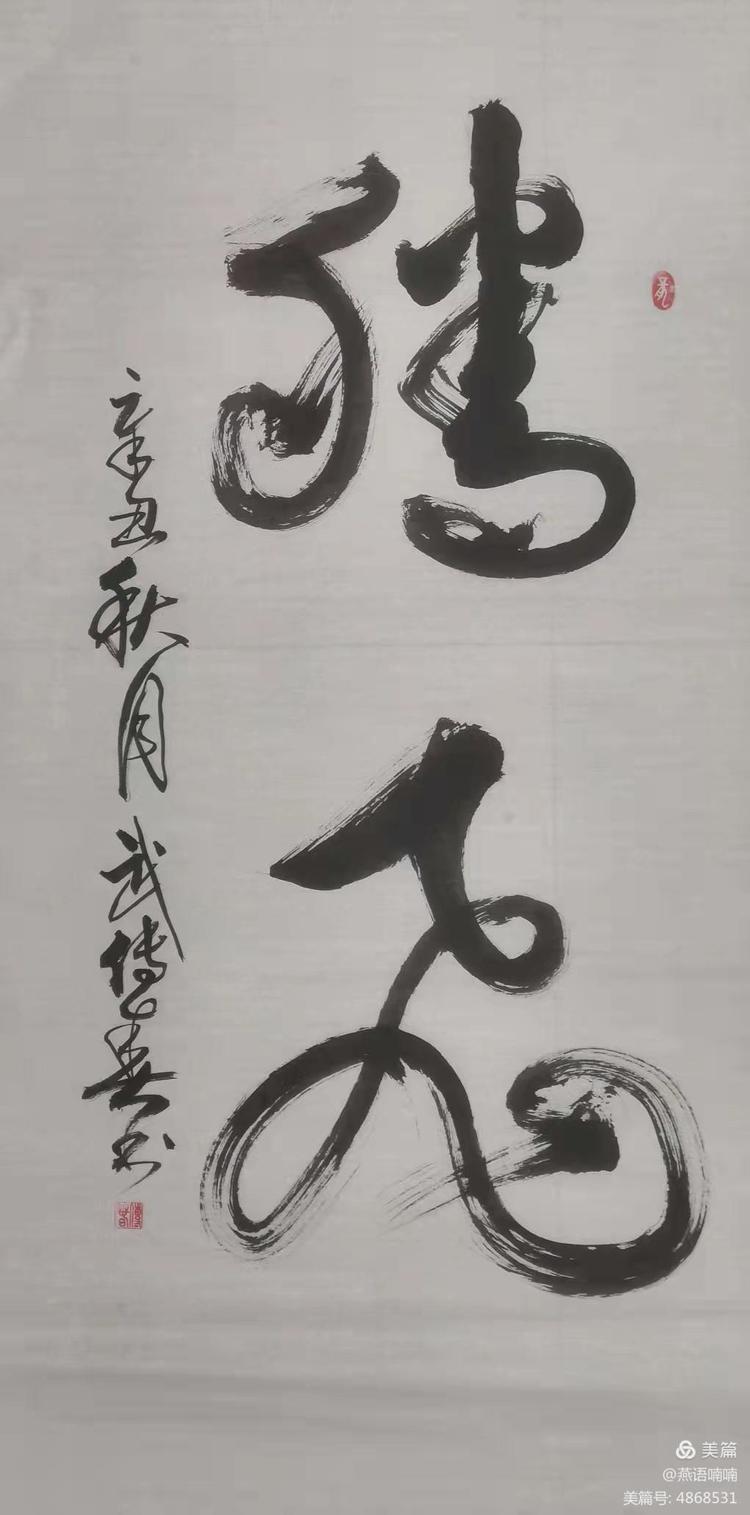 腾飞
辛丑秋月武传春书
美篇
@燕语喃喃
美篇号: 4868531